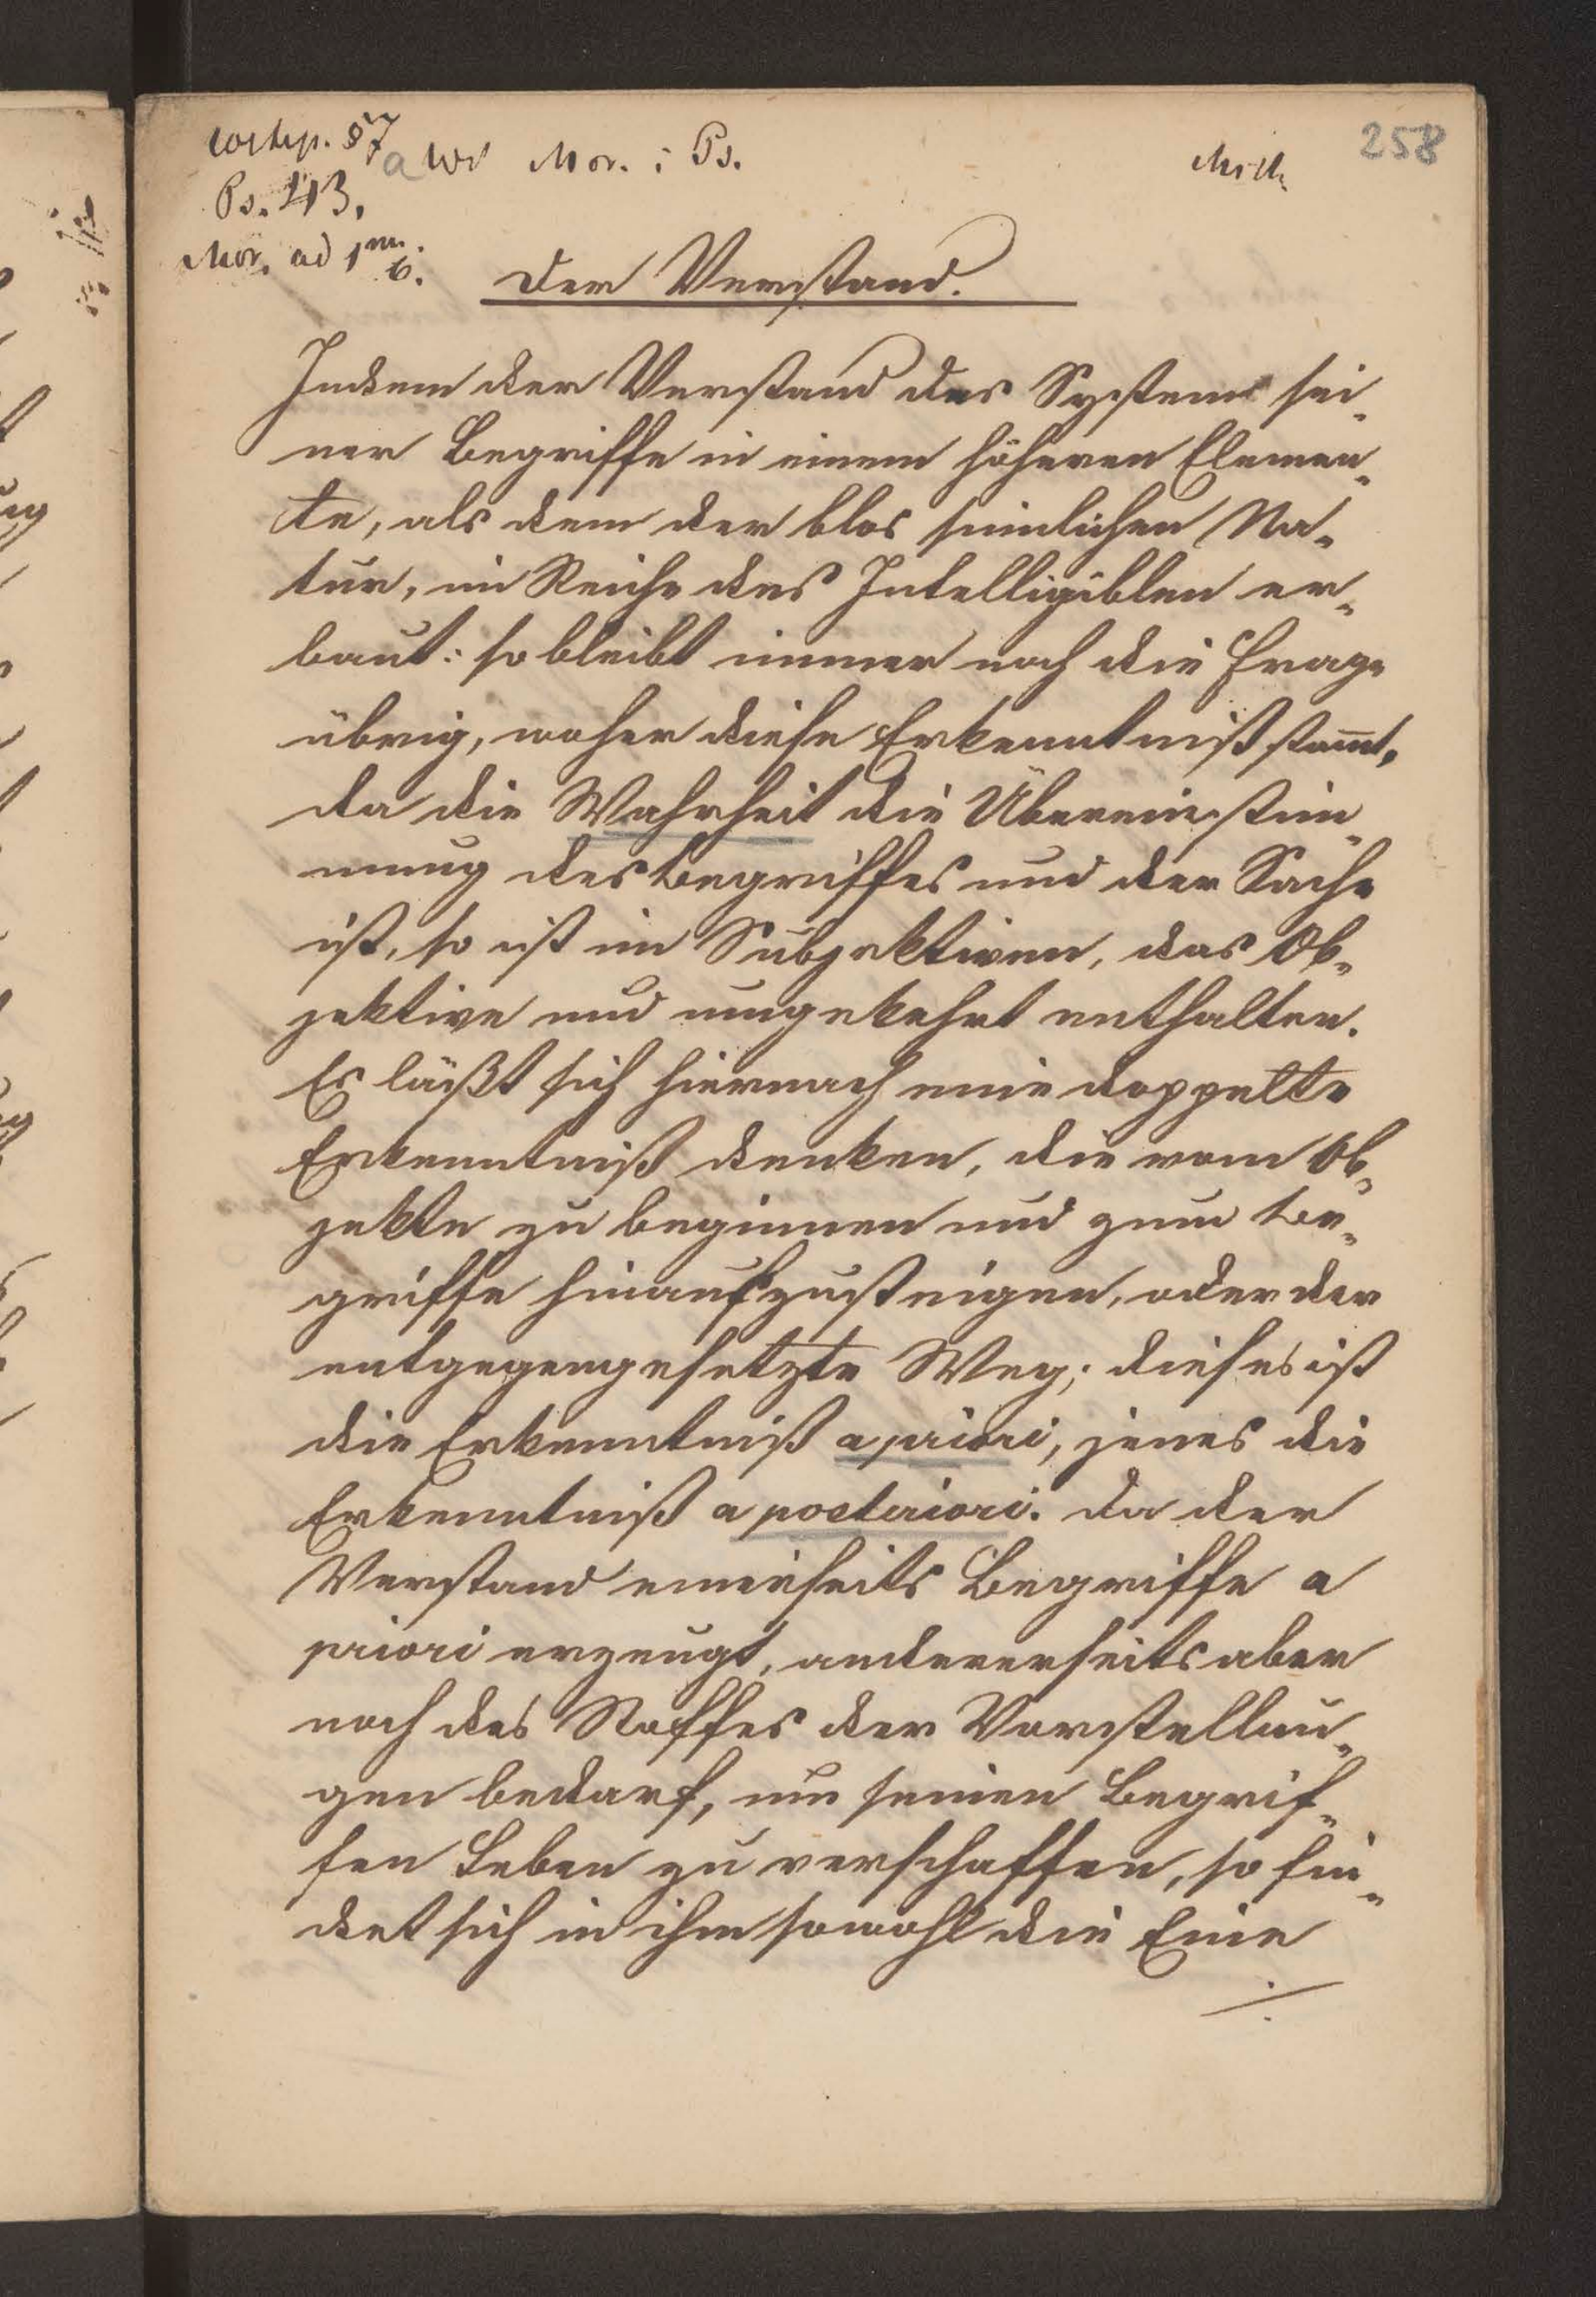 258
57
a Wd Mor. i Ps.
Ps. 43.
Mor. ad 1m 6.
Der Verstand.
Indem der Verstand das System sei-
ner Begriffe in einem höheren Elemen-
te, als dem der blos sinnlichen Na-
tur, im Reiche des Intelligiblen er-
baut: so bleibt immer noch die Frage
übrig, woher diese Erkenntniß stam̅t,
da die Wahrheit die Übereinstim-
mung des Begriffes und der Sache
ist, so ist im Subjektiven, das Ob-
jektive und umgekehrt enthalten.
Es läßt sich hiernach eine doppelte
Erkenntniß denken, die vom Ob-
jekte zu beginnen und zum Be-
griffe hinaufzusteigen, oder der
entgegengesetzte Weg; dieses ist
die Erkenntniß a priori, jenes die
Erkenntniß a posteriori. Da der
Verstand einerseits Begriffe a
priori erzeugt, andererseits aber
noch des Stoffes der Vorstellun-
gen bedarf, um seinen Begrif-
fen Leben zu verschaffen, so fin-
det sich in ihm sowohl die Eine